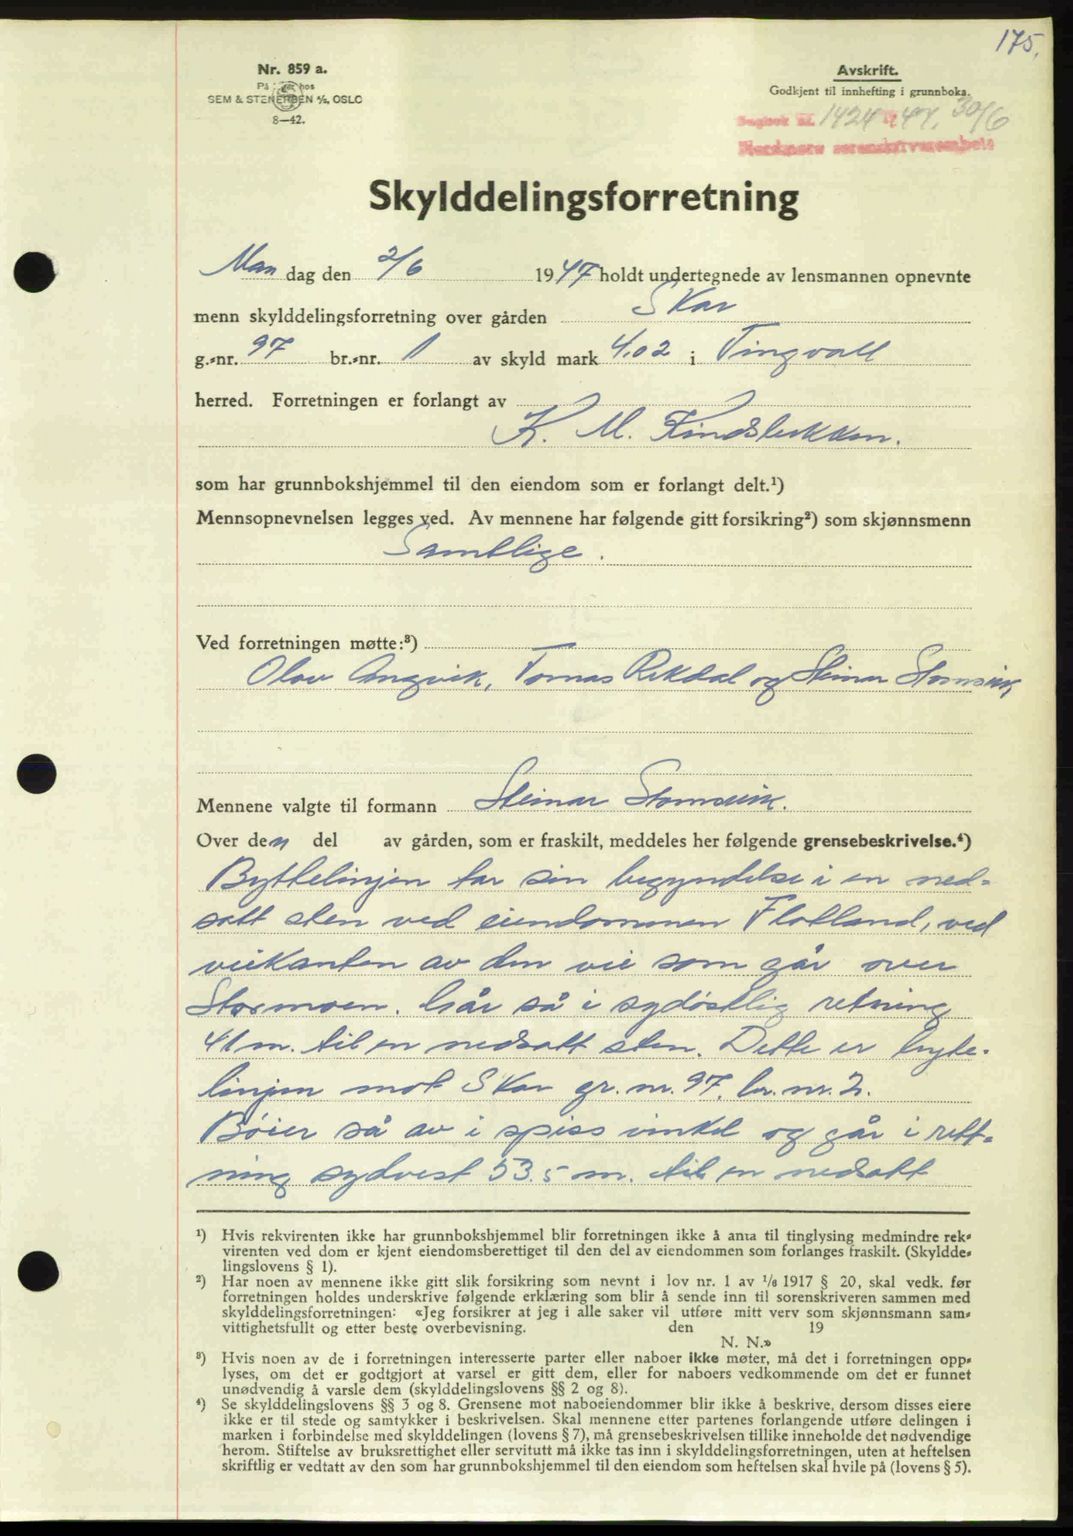 175.
Nr. 859 a.
På hos
SEM & STENERSEN A/S, OSLO
8—42.
Avskrift.
Godkjent til innhefting i grunnboka.
Dagbok nr. 1424 47. 30/6
Nordmøre sorenskriverembete
Skylddelingsforretning
Man dag den 2/6 1947 holdt undertegnede av lensmannen opnevnte
menn skylddelingsforretning over gården Skar
g.-nr. 97 br.-nr. 1 av skyld mark 4.02 i Tingvoll
herred. Forretningen er forlangt av
K. M.
som har grunnbokshjemmel til den eiendom som er forlangt delt.¹)
Mennsopnevnelsen legges ved. Av mennene har følgende gitt forsikring²) som skjønnsmenn
Samtlige.
Ved forretningen møtte:³)
Olav Angvik, Tomas Rikdal og Steinar Stormsvik
Mennene valgte til formann Steinar Stormsvik.
Over den del av gården, som er fraskilt, meddeles her følgende grensebeskrivelse.⁴)
Byttelinjen tar sin begyndelse i en ned-
satt sten ved eiendommen Flatland, ved
veikanten av den vei som går over
Stormoen. Går så i sydøstlig retning
41 m. til en nedsatt sten. Dette er byte-
linjen mot Skar gr. nr. 97, br. nr. 2.
Bøier så av i spiss vinkel og går i rett-
ning sydvest 53.5 m. til en nedsatt
¹) Hvis rekvirenten ikke har grunnbokshjemmel blir forretningen ikke å anta til tinglysing medmindre rek-
virenten ved dom er kjent eiendomsberettiget til den del av eiendommen som forlanges fraskilt. (Skyldde-
lingslovens § 1).
²) Har noen av mennene ikke gitt slik forsikring som nevnt i lov nr. 1 av 1/6 1917 § 20, skal vedk. før
forretningen holdes underskrive følgende erklæring som blir å sende inn til sorenskriveren sammen med
skylddelingsforretningen: «Jeg forsikrer at jeg i alle saker vil utføre mitt verv som skjønnsmann sam-
vittighetsfullt og etter beste overbevisning. den 19
N. N.»
³) Hvis noen av de i forretningen interesserte parter eller naboer ikke møter, må det i forretningen opp-
lyses, om det er godtgjort at varsel er gitt dem, eller for naboers vedkommende om det er funnet
unødvendig å varsle dem (skylddelingslovens §§ 2 og 8).
⁴) Se skylddelingslovens §§ 3 og 8. Grensene mot naboeiendommer blir ikke å beskrive, dersom disses eiere
ikke er til stede og samtykker i beskrivelsen. Skal mennene etter partenes forlangende utføre delingen i
marken i forbindelse med skylddelingen (lovens § 7), må grensebeskrivelsen tillike inneholde det nødvendige
herom. Stiftelse av bruksrettighet eller servitutt må ikke tas inn i skylddelingsforretningen, uten at heftelsen
skriftlig er vedtatt av den som har grunnbokshjemmel til den eiendom som heftelsen skal hvile på (lovens § 5).